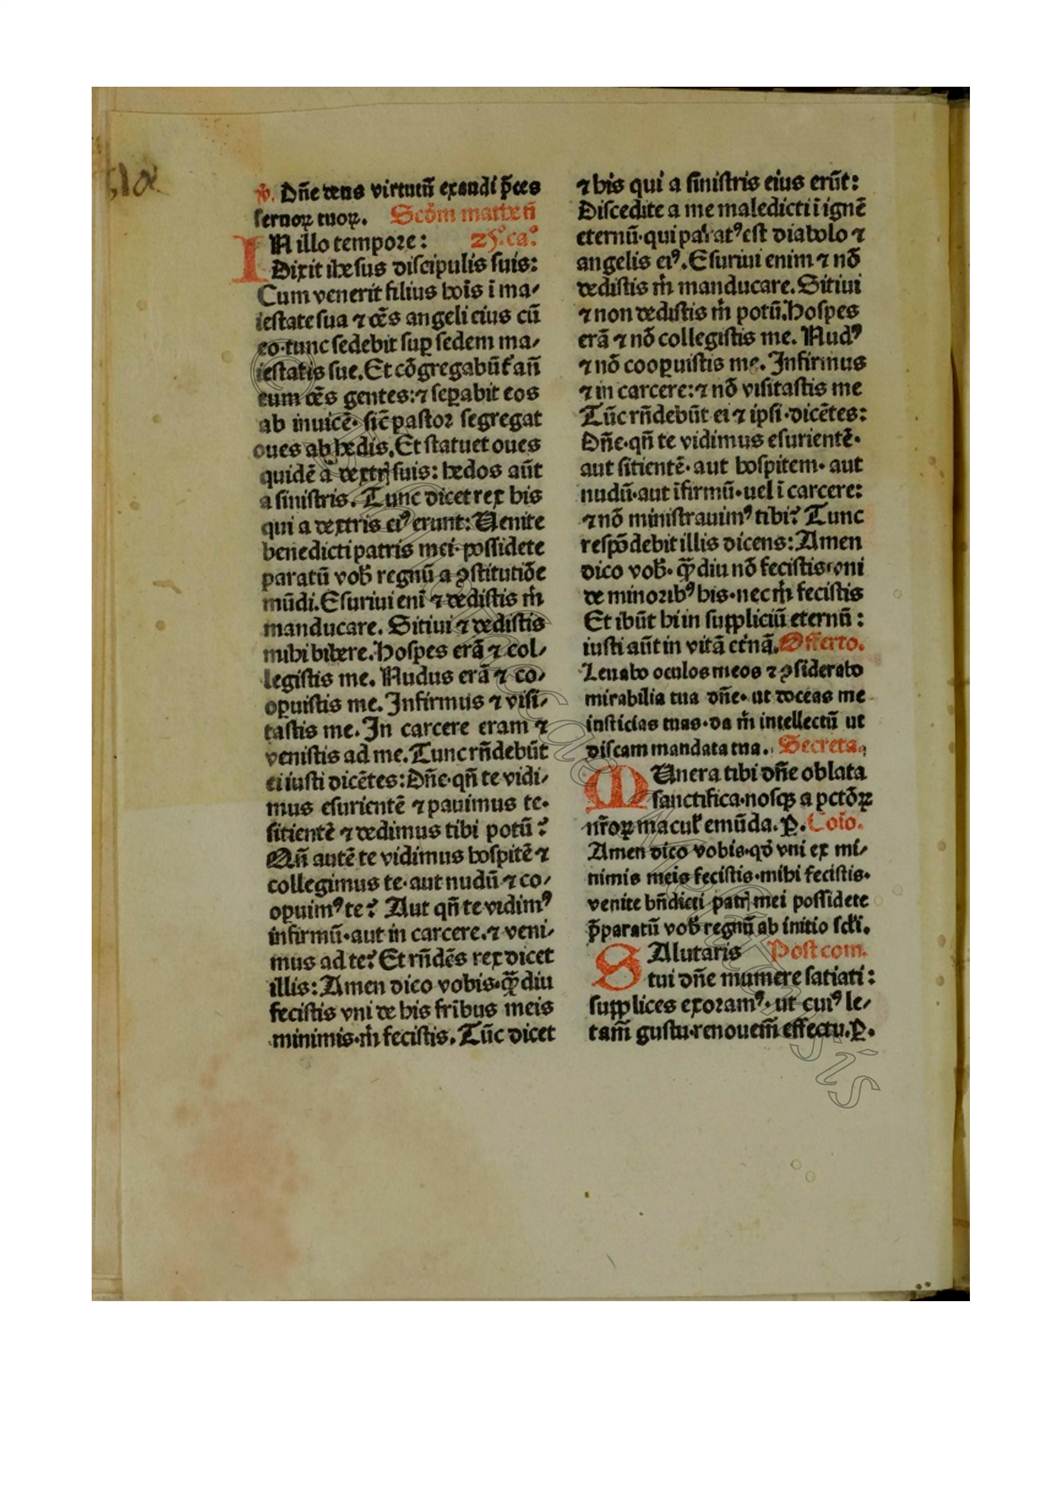 ℣. Dñe deus virtutũ exaudi p̃ces
seruoꝝ tuoꝝ. Scďm mattheũ
IN illo tempore: 25.º ca.º
Dixit ihesus discipulis suis:
Cum venerit filius hoĩs ĩ ma/
iestate sua ⁊ oẽs angeli eius cũ
eo·tunc sedebit suꝑ sedem ma/
iestatis sue. Et cõgregabũt̃ añ
eum oẽs gentes:⁊ seꝑabit eos
ab inuicẽ·sic̃ pastor segregat
oues ab hedis. Et statuet oues
quidẽ ã dextrꝭ suis: hedos aũt
a sinistris. Tunc dicet rex his
qui a dextris eiꝰ erunt: Uenite
benedicti patris mei·possidete
paratũ vob̃ regnũ a ꝯstitutiõe
mũdi. Esuriui enĩ ⁊ dedistis m̃
manducare. Sitiui ⁊ dedistis
mihi bibere. Hospes erã ⁊ col/
legistis me. Nudus erã ⁊ co/
oꝑuistis me. Infirmus ⁊ visi/
tastis me. In carcere eram ⁊
venistis ad me. Tunc rñdebũt
ei iusti dicẽtes: Dñe·qñ te vidi/
mus esurientẽ ⁊ pauimus te·
sitientẽ ⁊ dedimus tibi potũ?
Qñ autẽ te vidimus hospitẽ ⁊
collegimus te·aut nudũ ⁊ co/
oꝑuimꝰ te? Aut qñ te vidimꝰ
infirmũ·aut in carcere·⁊ veni/
mus ad te? Et rñdẽs rex dicet
illis: Amen dico vobis·q̃diu
fecistis vni de his fribus meis
minimis·m̃ fecistis. Tũc dicet
⁊ his qui a sinistris eius erũt:
Discedite a me maledicti ĩ ignẽ
eternũ·qui paratꝰ est diabolo ⁊
angelis eiꝰ. Esuriui enim ⁊ nõ
dedistis m̃ manducare. Sitiui
⁊ non dedistis m̃ potũ. Hospes
erã ⁊ nõ collegistis me. Nudꝰ
⁊ nõ cooꝑuistis me. Infirmus
⁊ in carcere:⁊ nõ visitastis me
Tũc rñdebũt ei ⁊ ipsi·dicẽtes:
Dñe·qñ te vidimus esurientẽ·
aut sitientẽ·aut hospitem·aut
nudũ·aut ĩfirmũ·uel ĩ carcere:
⁊ nõ ministrauimꝰ tibi? Tunc
respõdebit illis dicens: Amen
dico vob̃·q̃diu nõ fecistis vni
de minoribꝰ his·nec m̃ fecistis
Et ibũt hi in suppliciũ eternũ:
iusti aũt in vitã et̃nã. Offerto.
Leuabo oculos meos ⁊ ꝯsiderabo
mirabilia tua dñe·ut doceas me
iusticias tuas·da m̃ intellectũ ut
discam mandata tua. Secreta.
MUnera tibi dñe oblata
sanctifica·nosqꝫ a pctõꝝ
nr̃oꝝ macul̃ emũda. P. Coĩo.
Amen dico vobis·qď vni ex mi/
nimis meis fecistis·mihi fecistis·
venite bñdicti patrꝭ mei possidete
p̃paratũ vob̃ regnũ ab initio sc̃li.
SAlutaris Postcom.
tui dñe munere satiati:
supplices exoramꝰ·ut cuiꝰ le/
tam̃ gustu·renouem̃ effectu. P.